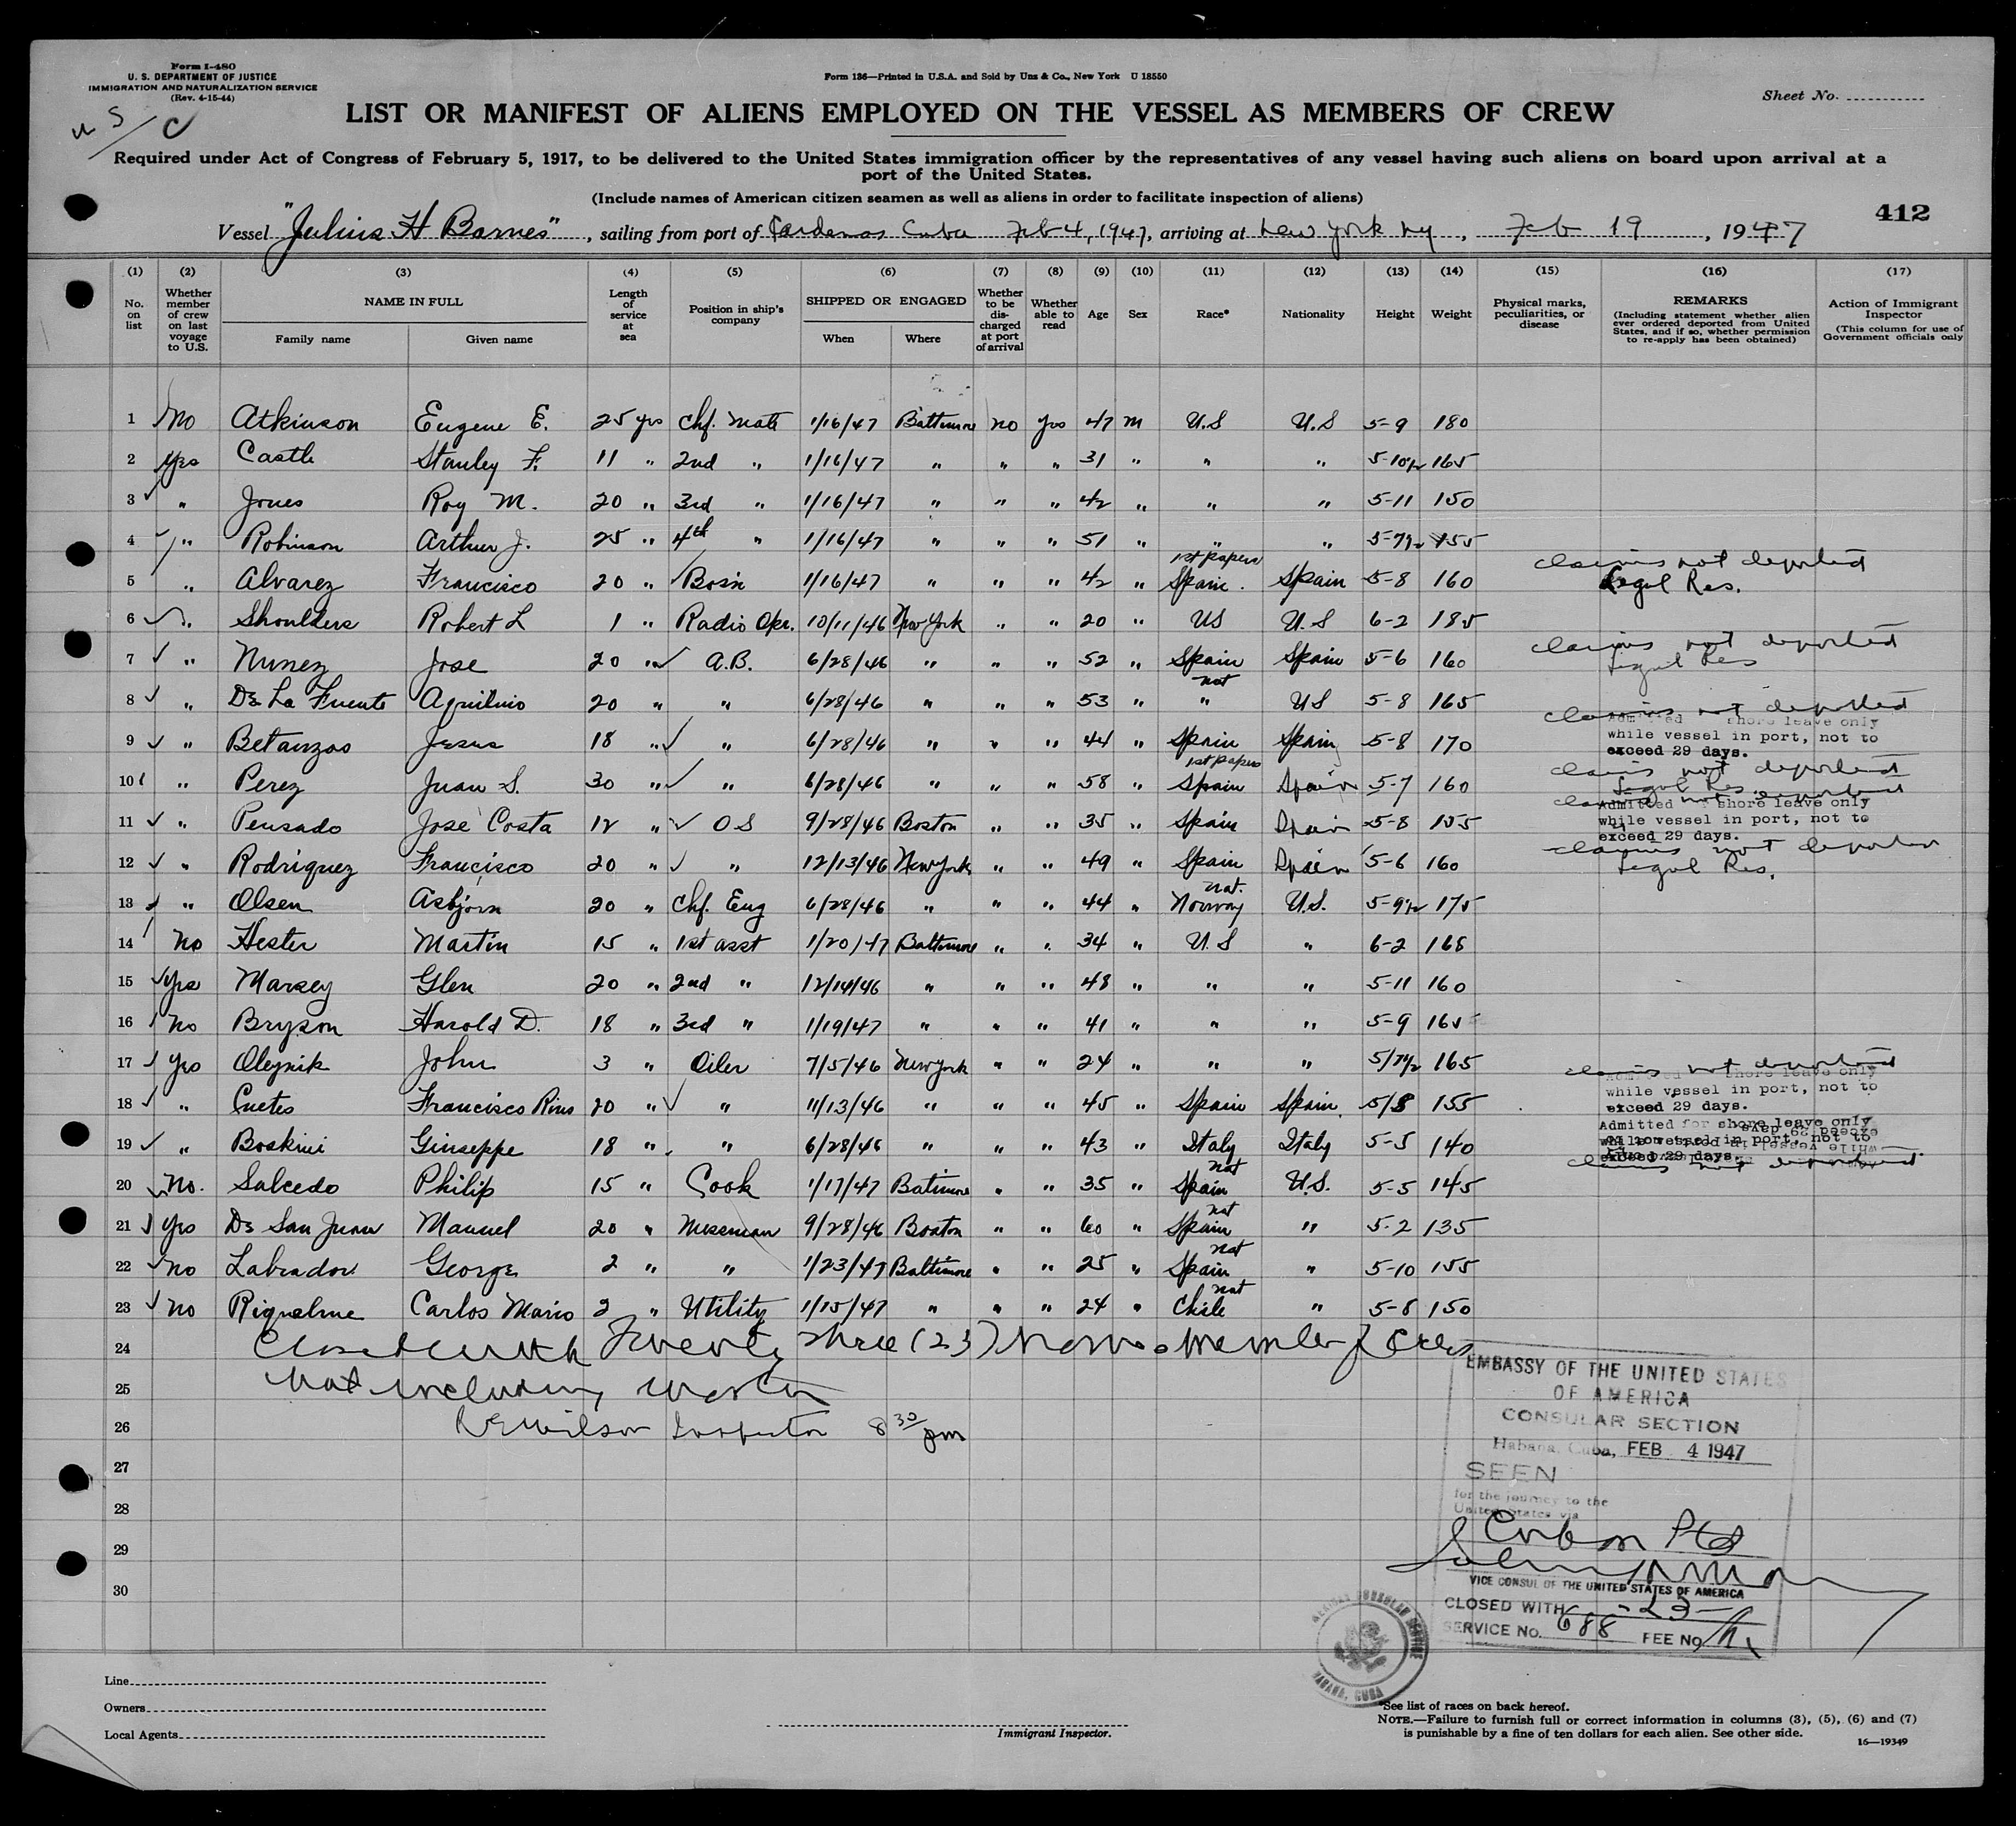 Form I-480
U. S. DEPARTMENT OF JUSTICE
IMMIGRATION AND NATURALIZATION SERVICE
(Rev. 4-15-44)
Form 136—Printed in U.S.A. and Sold by Unz & Co., New York U 18550
Sheet No.
U S / C
LIST OR MANIFEST OF ALIENS EMPLOYED ON THE VESSEL AS MEMBERS OF CREW
Required under Act of Congress of February 5, 1917, to be delivered to the United States immigration officer by the representatives of any vessel having such aliens on board upon arrival at a
port of the United States.
(Include names of American citizen seamen as well as aliens in order to facilitate inspection of aliens)
412
Vessel "Julius H Barnes", sailing from port of Cardenas Cuba Feb 4, 1947, arriving at New York NY, Feb 19, 1947
(1) (2) (3) (4) (5) (6) (7) (8) (9) (10) (11) (12) (13) (14) (15) (16) (17)
No. on list
Whether member of crew on last voyage to U.S.
NAME IN FULL
Family name
Given name
Length of service at sea
Position in ship's company
SHIPPED OR ENGAGED
When
Where
Whether to be discharged at port of arrival
Whether able to read
Age
Sex
Race*
Nationality
Height
Weight
Physical marks, peculiarities, or disease
REMARKS
(Including statement whether alien ever ordered deported from United States, and if so, whether permission to re-apply has been obtained)
Action of Immigrant Inspector
(This column for use of Government officials only
1 No Atkinson Eugene E. 25 yrs Chf. Mate 1/16/47 Baltimore no yes 47 m U.S U.S 5-9 180
2 Yes Castle Stanley F. 11 " 2nd " 1/16/47 " " " 31 " " " 5-10½ 165
3 " Jones Roy M. 20 " 3rd " 1/16/47 " " " 42 " " " 5-11 150
4 " Robinson Arthur J. 25 " 4th " 1/16/47 " " " 51 " " " 5-7½ 155
1st papers
claims not deported
5 " Alvarez Francisco 20 " Bos'n 1/16/47 " " " 42 " Spain. Spain 5-8 160 Legal Res.
6 " Shoulders Robert L 1 " Radio Opr. 10/11/46 New York " " 20 " US U.S 6-2 185
claims not deported
7 " Nunez Jose 20 " A.B. 6/28/46 " " " 52 " Spain Spain 5-6 160 Legal Res
not
8 " De La Fuente Aquilino 20 " " 6/28/46 " " " 53 " " US 5-8 165
claims not deported
Admitted shore leave only
9 " Betanzos Jesus 18 " " 6/28/46 " " " 44 " Spain Spain 5-8 170 while vessel in port, not to
exceed 29 days.
1st papers
claims not deported
10 " Perez Juan S. 30 " " 6/28/46 " " " 58 " Spain Spain 5-7 160 Legal Res
claims not deported
Admitted shore leave only
11 " Pensado Jose Costa 12 " OS 9/28/46 Boston " " 35 " Spain Spain 5-8 155 while vessel in port, not to
exceed 29 days.
claims not deported
12 " Rodriguez Francisco 20 " " 12/13/46 New York " " 49 " Spain Spain 5-6 160 Legal Res.
nat.
13 " Olsen Asbjorn 20 " Chf. Eng 6/28/46 " " " 44 " Norway U.S. 5-9½ 175
14 No Hester Martin 15 " 1st asst 1/20/47 Baltimore " " 34 " U.S " 6-2 168
15 Yes Marsey Glen 20 " 2nd " 12/14/46 " " " 48 " " " 5-11 160
16 No Bryson Harold D. 18 " 3rd " 1/19/47 " " " 41 " " " 5-9 165
17 Yes Olejnik John 3 " Oiler 7/5/46 New York " " 24 " " " 5/7½ 165
claims not deported
shore leave only
while vessel in port, not to
18 " Cuetos Francisco Rius 20 " " 11/13/46 " " " 45 " Spain Spain 5/8 155 exceed 29 days.
Admitted for shore leave only
19 " Boskini Giuseppe 18 " " 6/28/46 " " " 43 " Italy Italy 5-5 140 while vessel in port, not to
exceed 29 days.
claims not deported
nat
20 No. Salcedo Philip 15 " Cook 1/17/47 Batimore " " 35 " Spain U.S. 5-5 145
nat
21 Yes De San Juan Manuel 20 " Messman 9/28/46 Boston " " 60 " Spain " 5-2 135
nat
22 No Labrador George 2 " " 1/23/47 Baltimore " " 25 " Spain " 5-10 155
nat
23 No Riquelme Carlos Mario 2 " Utility 1/15/47 " " " 24 " Chile " 5-8 150
24 Closed with Twenty three (23) Names Member of Crew
25 Not including Master
26 Wilson Inspector 8 30 pm
27
28
29
30
EMBASSY OF THE UNITED STATES
OF AMERICA
CONSULAR SECTION
Habana, Cuba, FEB 4 1947
SEEN
for the journey to the
United States via
Cuban Pts
VICE CONSUL OF THE UNITED STATES OF AMERICA
CLOSED WITH - 23 -
SERVICE NO. 688 FEE NO.
AMERICAN CONSULAR SERVICE
HABANA, CUBA
Line
Owners
Local Agents
Immigrant Inspector.
*See list of races on back hereof.
NOTE.—Failure to furnish full or correct information in columns (3), (5), (6) and (7)
is punishable by a fine of ten dollars for each alien. See other side.
16—19349